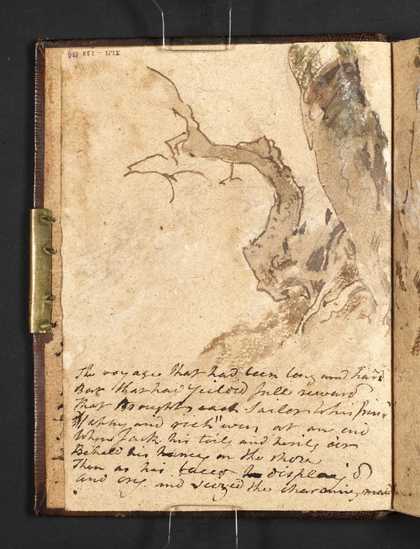 The voyage that had been long and hard
But that had yeilded full reward
That brought each Sailor to his friend
Happy and rich was at an end
When Jack his toils and perils o'er
Beheld his Nancy on the shore
Then as his display'd
and cry and seized the charming maid